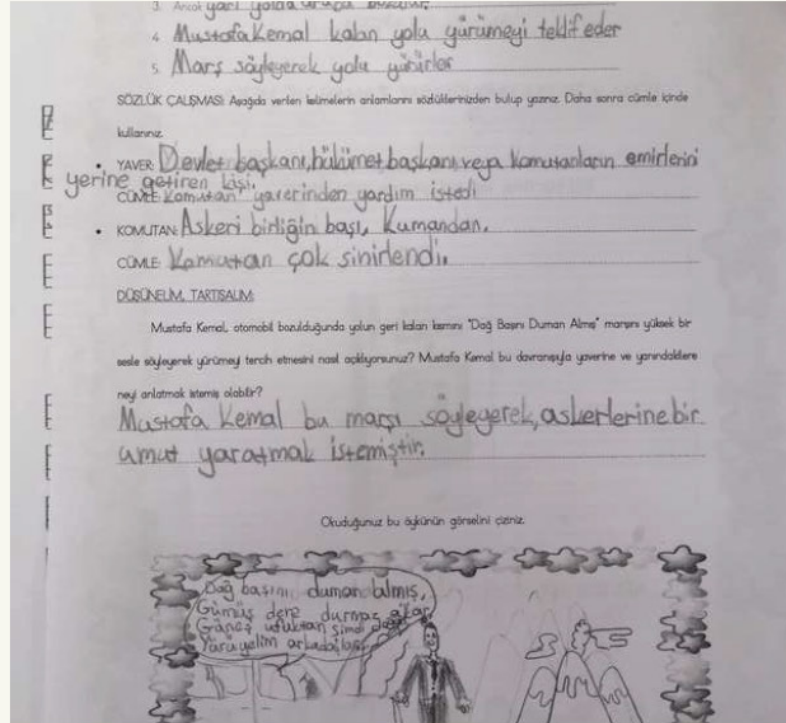 3. Ancak yarı yolda araba bozulur.
4. Mustafa Kemal kalan yolu yürümeyi teklif eder
5. Marş söyleyerek yolu yürürler
SÖZLÜK ÇALIŞMASI: Aşağıda verilen kelimelerin anlamlarını sözlüklerinizden bulup yazınız. Daha sonra cümle içinde
kullanınız.
• YAVER: Devlet başkanı, hükümet başkanı veya komutanların emirlerini
yerine getiren kişi.
CÜMLE: Komutan yaverinden yardım istedi
• KOMUTAN: Askeri birliğin başı, Kumandan.
CÜMLE: Komutan çok sinirlendi.
DÜŞÜNELİM, TARTIŞALIM:
Mustafa Kemal, otomobil bozulduğunda yolun geri kalan kısmını "Dağ Başını Duman Almış" marşını yüksek bir
sesle söyleyerek yürümeyi tercih etmesini nasıl açıklıyorsunuz? Mustafa Kemal bu davranışıyla yaverine ve yanındakilere
neyi anlatmak istemiş olabilir?
Mustafa Kemal bu marşı söyleyerek, askerlerine bir
umut yaratmak istemiştir.
Okuduğunuz bu öykünün görselini çiziniz.
Dağ başını duman almış,
Gümüş dere durmaz akar
Güneş ufuktan şimdi doğar
Yürüyelim arkadaşlar